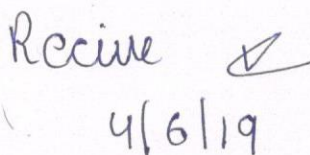 Recive
4/6/19